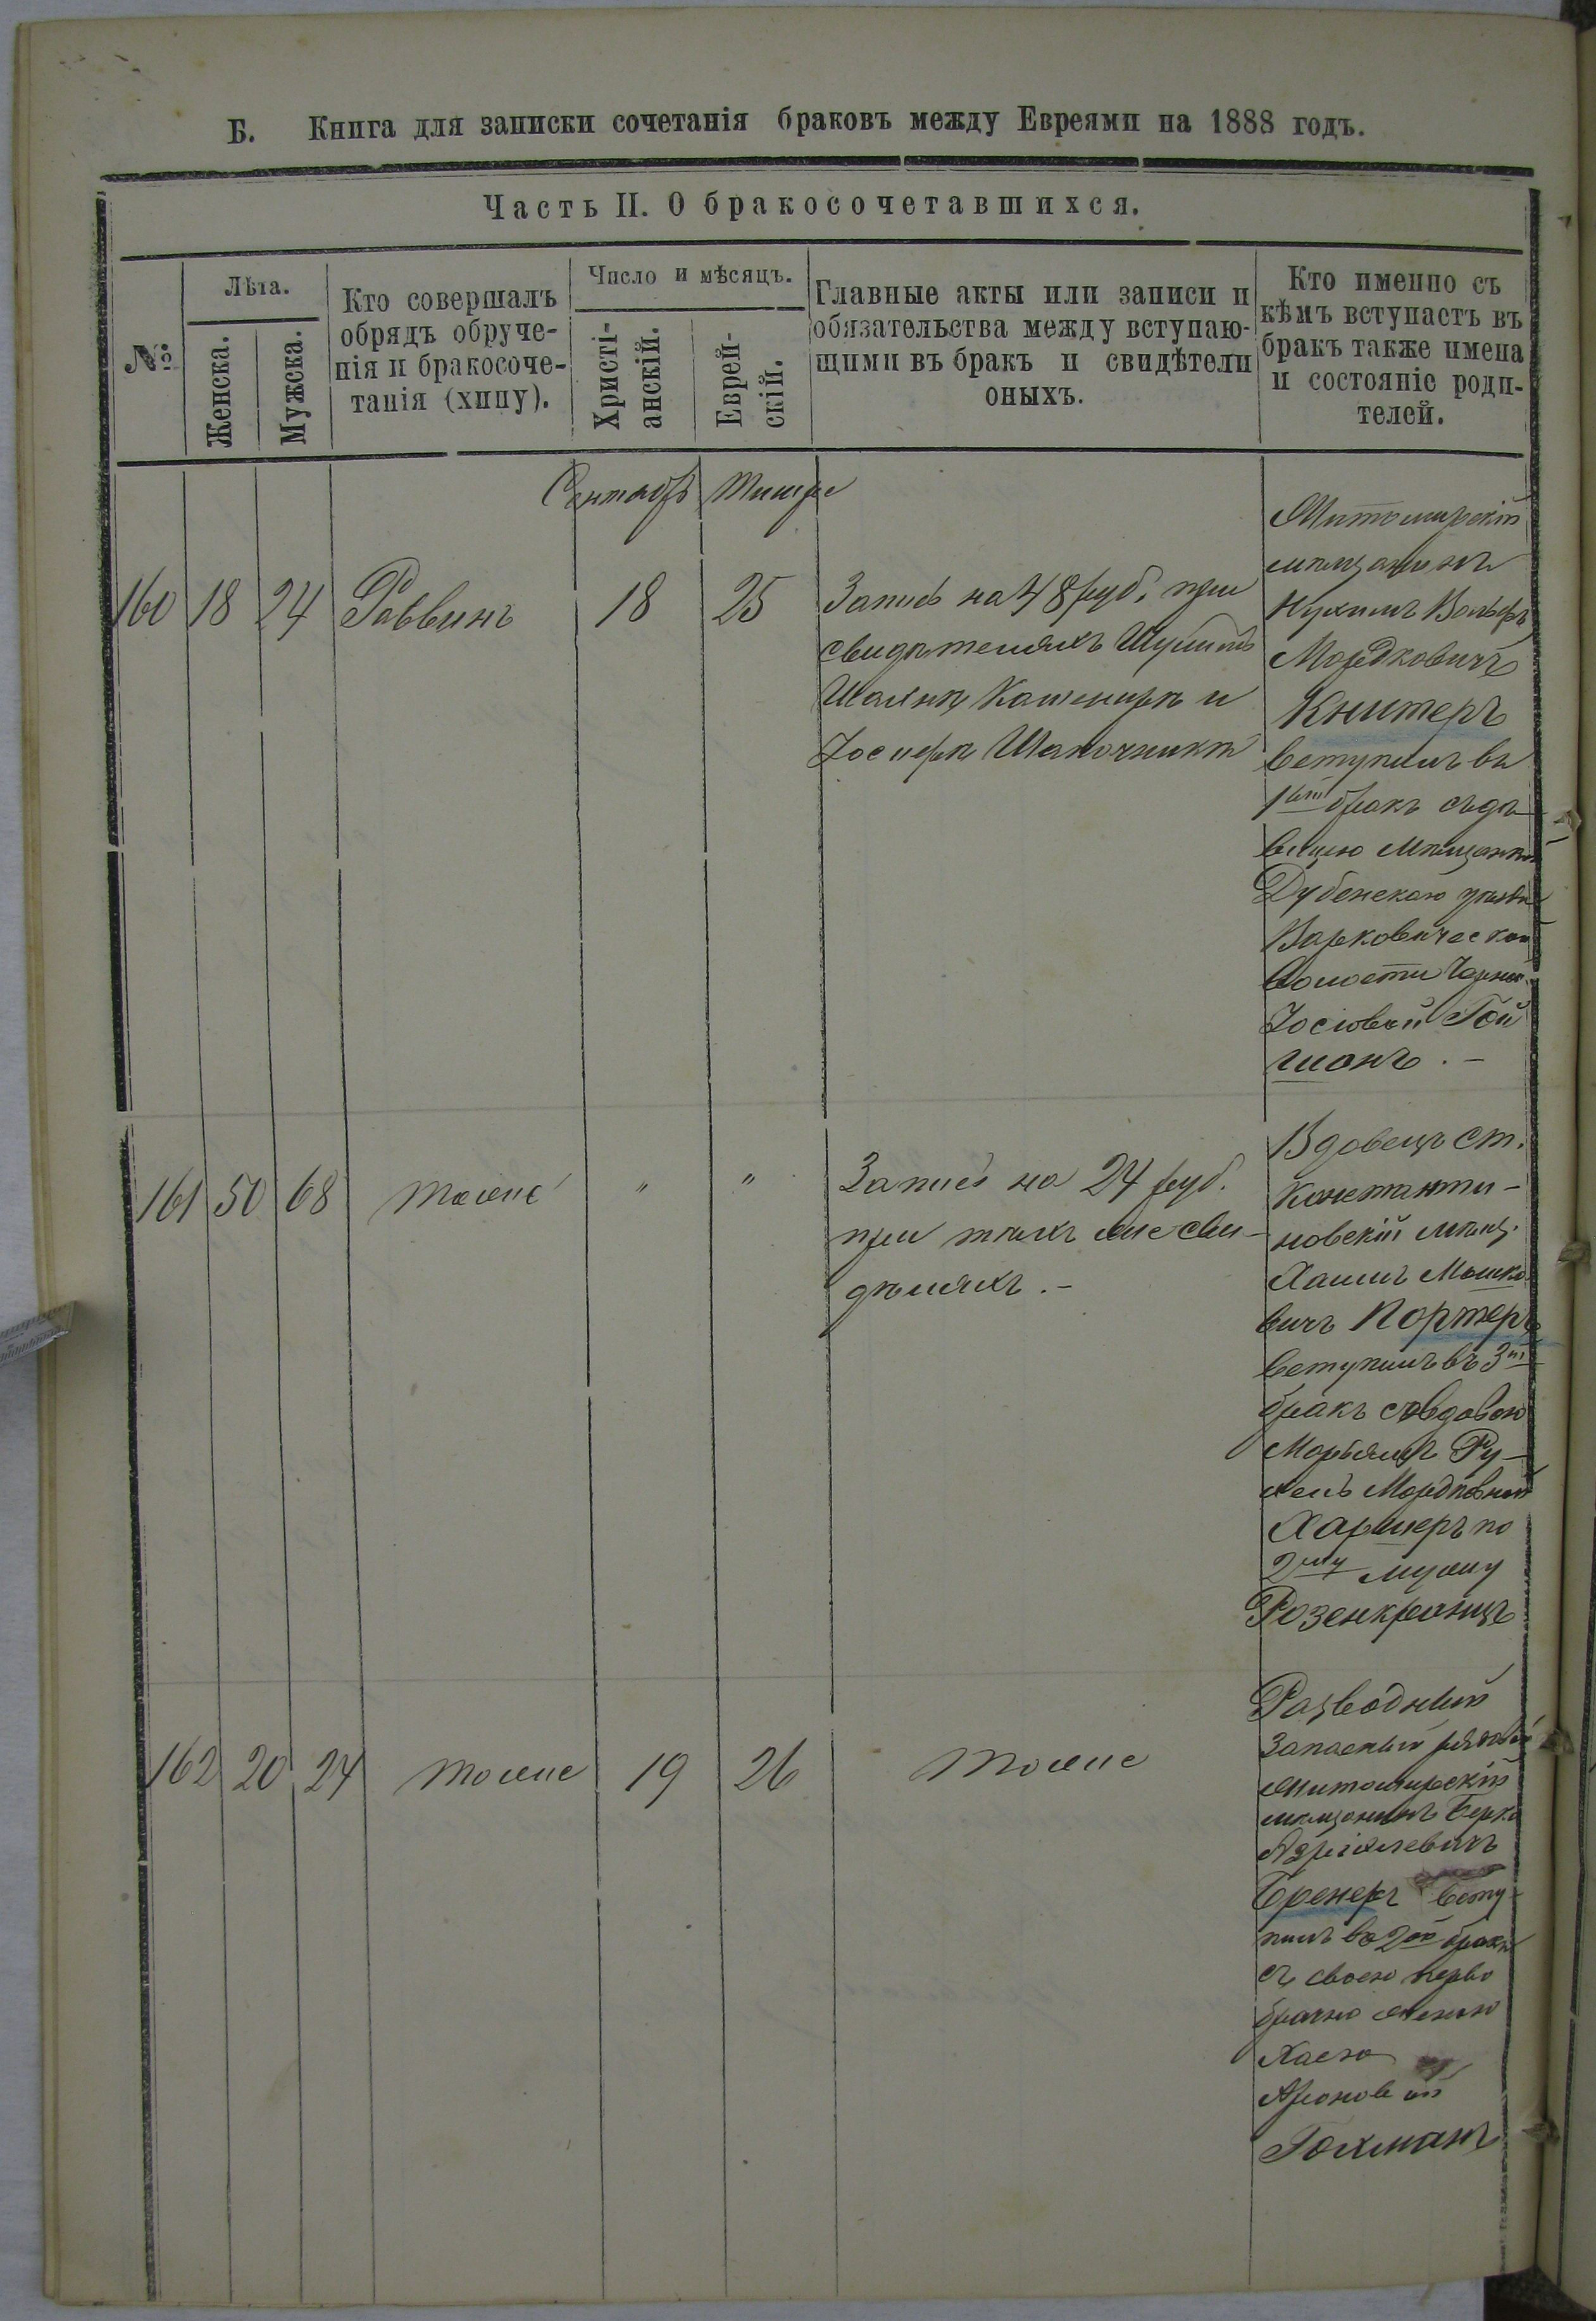 Б. Книга для записки сочетанія браковъ между Евреями на 1888 годъ.
Часть II. О бракосочетавшихся.
№
Лѣта.
Женска.
Мужска.
Кто совершалъ
обрядъ обруче-
нія и бракосоче-
танія (хипу).
Число и мѣсяцъ.
Христі-
анскій.
Еврей-
скій.
Главные акты или записи и
обязательства между вступаю-
щими въ бракъ и свидѣтели
оныхъ.
Кто именно съ
кѣмъ вступаетъ въ
бракъ также имена
и состояніе роди-
телей.
Сентябрь Тишре
160 18 24 Раввинъ 18 25
Запись на 48 руб. при
свидѣтеляхъ
и
Іосифѣ Шапочникѣ
Житомирскій
мѣщанинъ
Нухимъ Вольфъ
Мордковичъ
Книтеръ
вступилъ въ
1вый бракъ съ дѣ
вицею мѣщанкой
Дубенскаго уѣзда
Варковической
волости
Іосіовой Гой
шанъ . –
161 50 68 тоже " "
Запись на 24 руб.
при тѣхъ же сви-
дѣляхъ . –
Вдовецъ Ст.
Константи-
новскій мѣщ.
Хаимъ Мошко
вичъ Портеръ
вступилъ въ 3й
бракъ со вдовою
Марьямъ Ру-
хель Мордковной
Харшеръ по
2му мужу
Розенкранцъ
162 20 24 тоже 19 26 тоже
Разводный
запасный рядовой
житомирскій
мѣщанинъ Берко
Азріилевичъ
Бренеръ всту-
пилъ во 2ой бракъ
съ своею перво
брачно женою
Хаею
Ароновой
Гохманъ